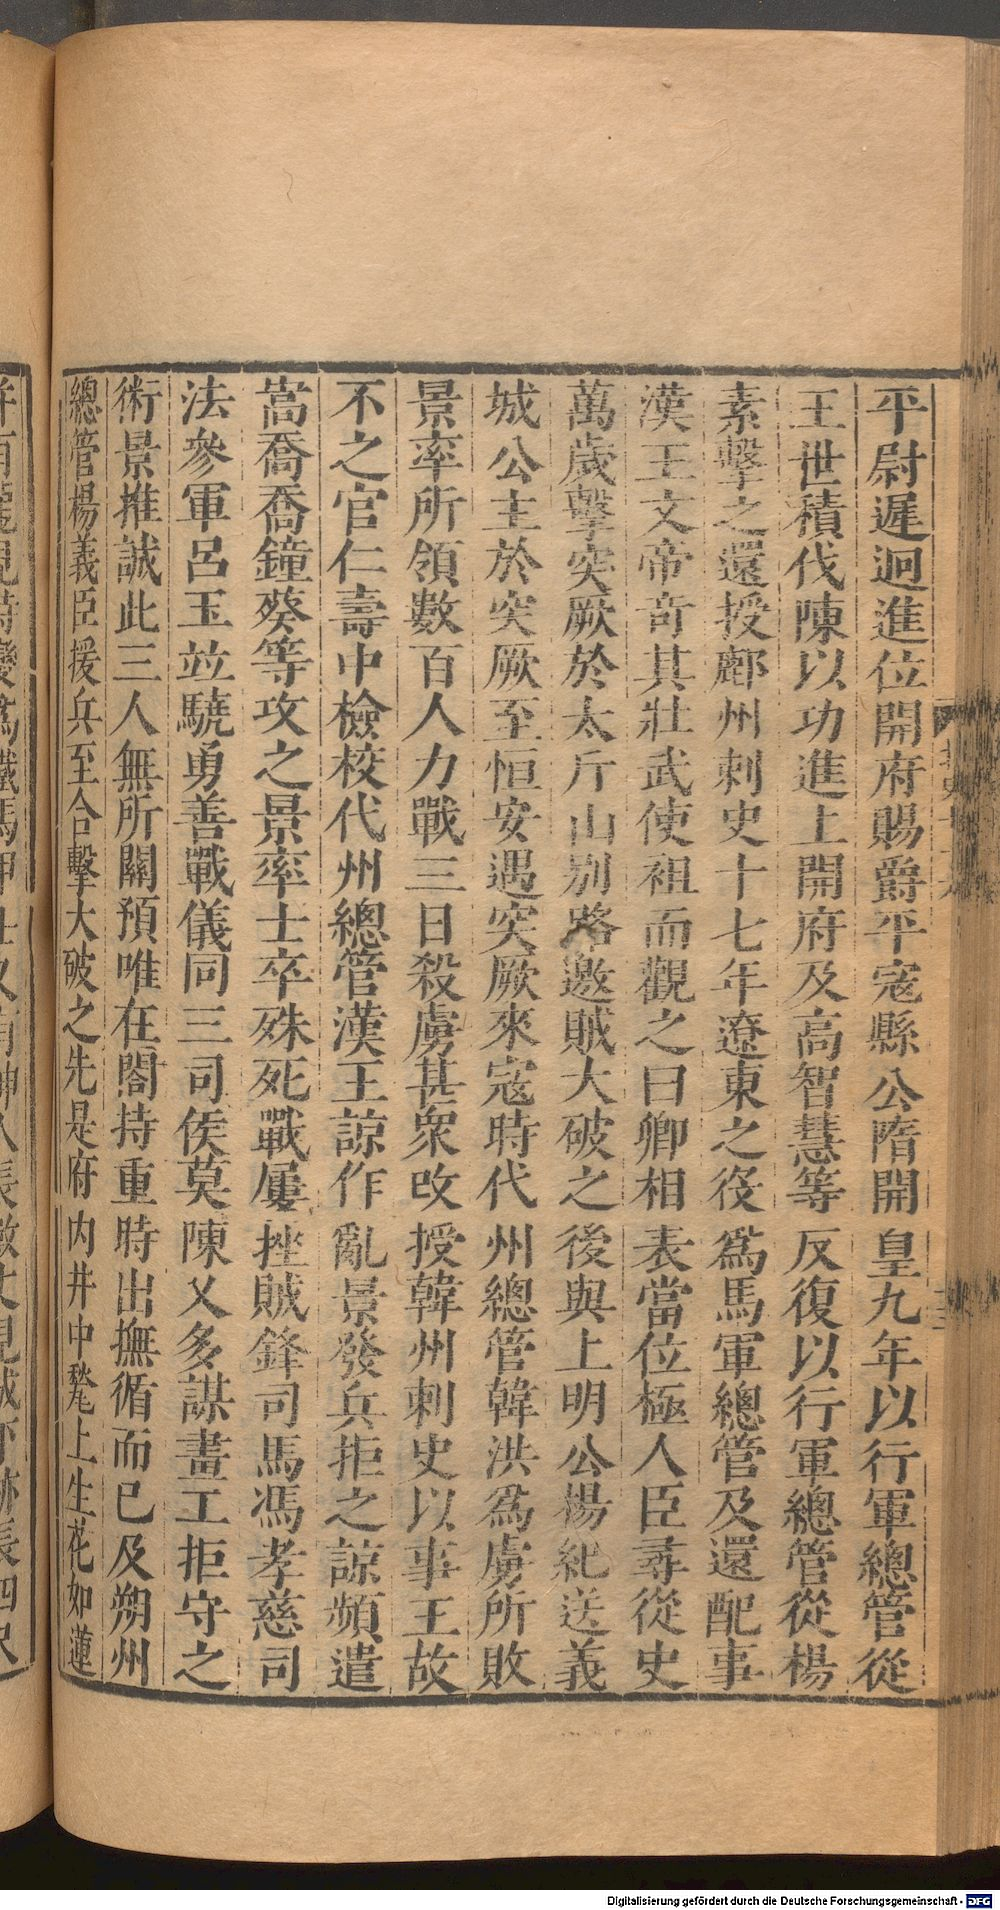 平尉遲迥進位開府賜爵平寇縣公隋開皇九年以行軍總管從
王世積伐陳以功進上開府及高智慧等反復以行軍總管從楊
素擊之還授鄜州刺史十七年遼東之役爲馬軍總管及還配事
漢王文帝奇其壯武使袒而觀之曰卿相表當位極人臣尋從史
萬歲擊突厥於太斤山別路邀賊大破之後與上明公楊紀送義
城公主於突厥至恒安遇突厥來寇時代州總管韓洪爲虜所敗
景率所領數百人力戰三日殺虜甚衆改授韓州刺史以事王故
不之官仁壽中檢校代州總管漢王諒作亂景發兵拒之諒頻遣
嵩喬喬鐘葵等攻之景率士卒殊死戰屢挫賊鋒司馬馮孝慈司
法參軍呂玉竝驍勇善戰儀同三司侯莫陳乂多謀畫工拒守之
術景推誠此三人無所關預唯在閤持重時出撫循而已及朔州
總管楊義臣援兵至合擊大破之先是府內井中甃上生花如蓮
Digitalisierung gefördert durch die Deutsche Forschungsgemeinschaft - DFG